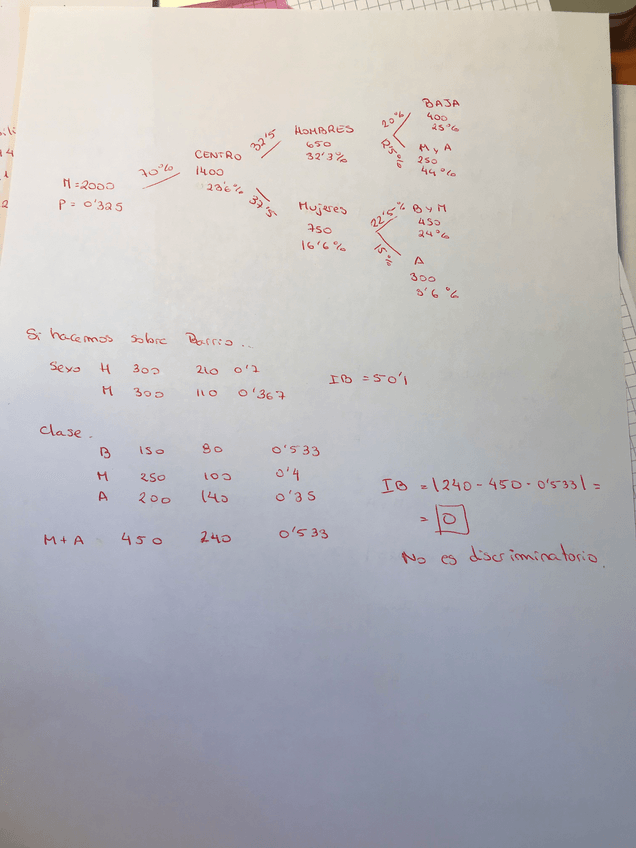 BAJA
20% 400
25%
32'5 HOMBRES
650
32'3%
12'5% M y A
250
44%
70% CENTRO
1400
23'6%
M=2000
P = 0'325
37'5 Mujeres
750
16'6%
22'5% B y M
450
24%
15% A
300
5'6%
Si hacemos sobre Barrio..
Sexo H 300 210 0'7
M 300 110 0'367
IB = 50'1
Clase.
B 150 80 0'533
M 250 100 0'4
A 200 140 0'35
IB = |240 - 450 · 0'533| =
= 0
M+A 450 240 0'533
No es discriminatorio.